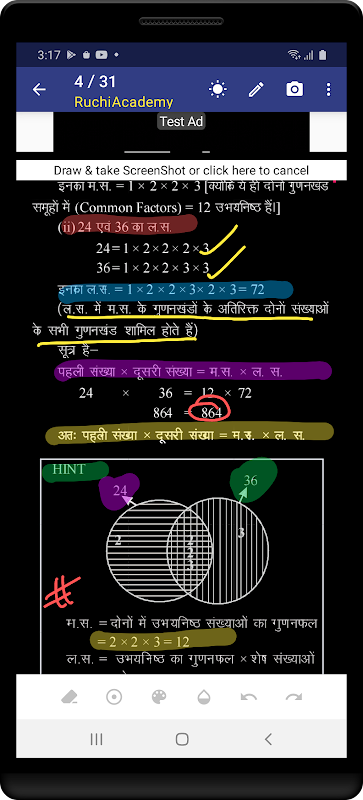 3:17
4 / 31
RuchiAcademy
Test Ad
Draw & take ScreenShot or click here to cancel
इनका म.स. = 1 × 2 × 2 × 3 [क्योंकि ये ही दोनों गुणनखंड
समूहों में (Common Factors) = 12 उभयनिष्ठ हैं।]
(ii) 24 एवं 36 का ल.स.
24 = 1 × 2 × 2 × 2 × 3
36 = 1 × 2 × 2 × 3 × 3
इनका ल.स. = 1 × 2 × 2 × 3 × 2 × 3 = 72
(ल.स. में म.स. के गुणनखंडों के अतिरिक्त दोनों संख्याओं
के सभी गुणनखंड शामिल होते हैं)
सूत्र है–
पहली संख्या × दूसरी संख्या = म.स. × ल. स.
24 × 36 = 12 × 72
864 = 864
अतः पहली संख्या × दूसरी संख्या = म.स. × ल. स.
HINT
24 36
2 2 2 3 3
म.स. = दोनों में उभयनिष्ठ संख्याओं का गुणनफल
= 2 × 2 × 3 = 12
ल.स. = उभयनिष्ठ का गुणनफल × शेष संख्याओं